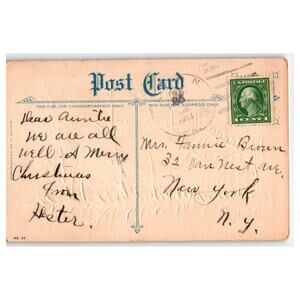 Post Card
THIS SIDE FOR CORRESPONDENCE ONLY
THIS SIDE FOR ADDRESS ONLY
DEC
1913
1 CENT 1
Dear Auntie
we are all
well A Merry
Christmas
from
Hester.
Mrs. Fannie Brown
32 Van Nest ave.
New York
N. Y.